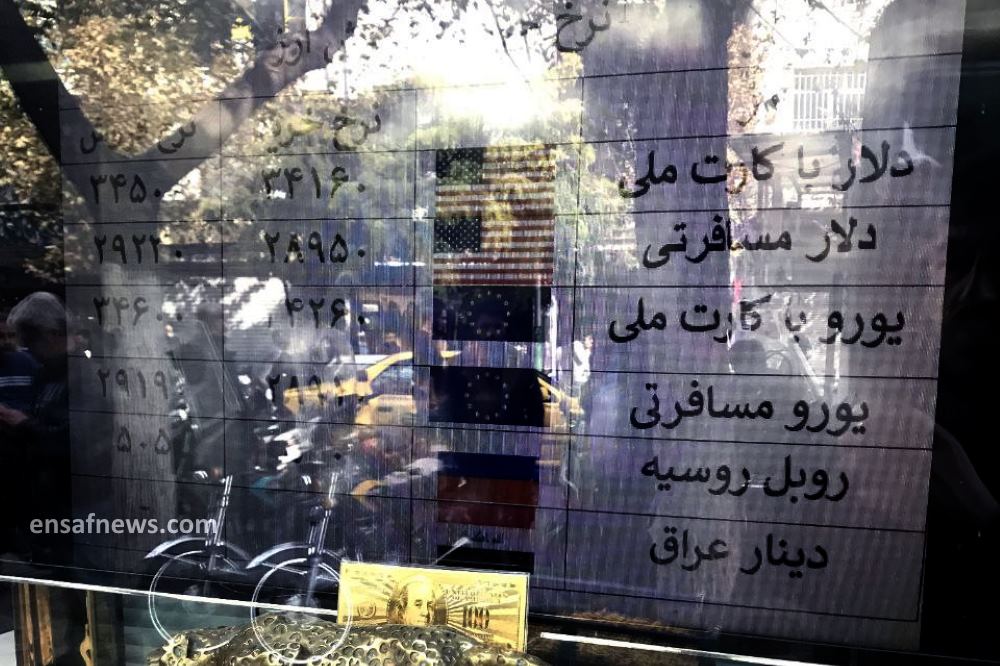 نرخ
نرخ خرید
دلار با کارت ملی ۳۴۱۶۰
دلار مسافرتی ۲۸۹۵۰ ۲۹۲۲۰
یورو با کارت ملی ۳۴۶۰۰
یورو مسافرتی
روبل روسیه
دینار عراق
ensafnews.com
100